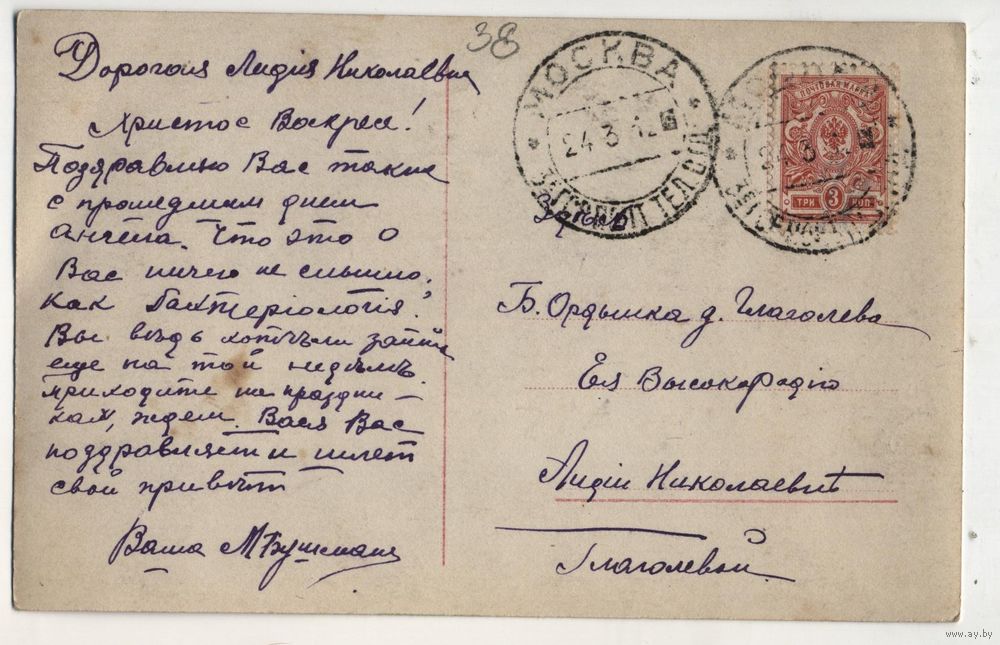 38
Дорогая Лидія Николаевна
Христос Воскресе!
Поздравляю Вас также
с прошедшим днем
Ангела. Что это о
Вас ничего не слышно,
как бактеріологія?
Вы вѣдь хотѣли зайти
еще на той недѣлѣ.
приходите на праздни-
ках, ждем. Вася Вас
поздравляет и шлет
свой привѣт
Ваша М Бушман
МОСКВА
24.3.12
ПОЧТОВАЯ МАРКА
ТРИ 3 КОП
Здѣсь
Б. Ордынка д. Глаголева
Ея Высокородію
Лидіи Николаевнѣ
Глаголевой
www.ay.by